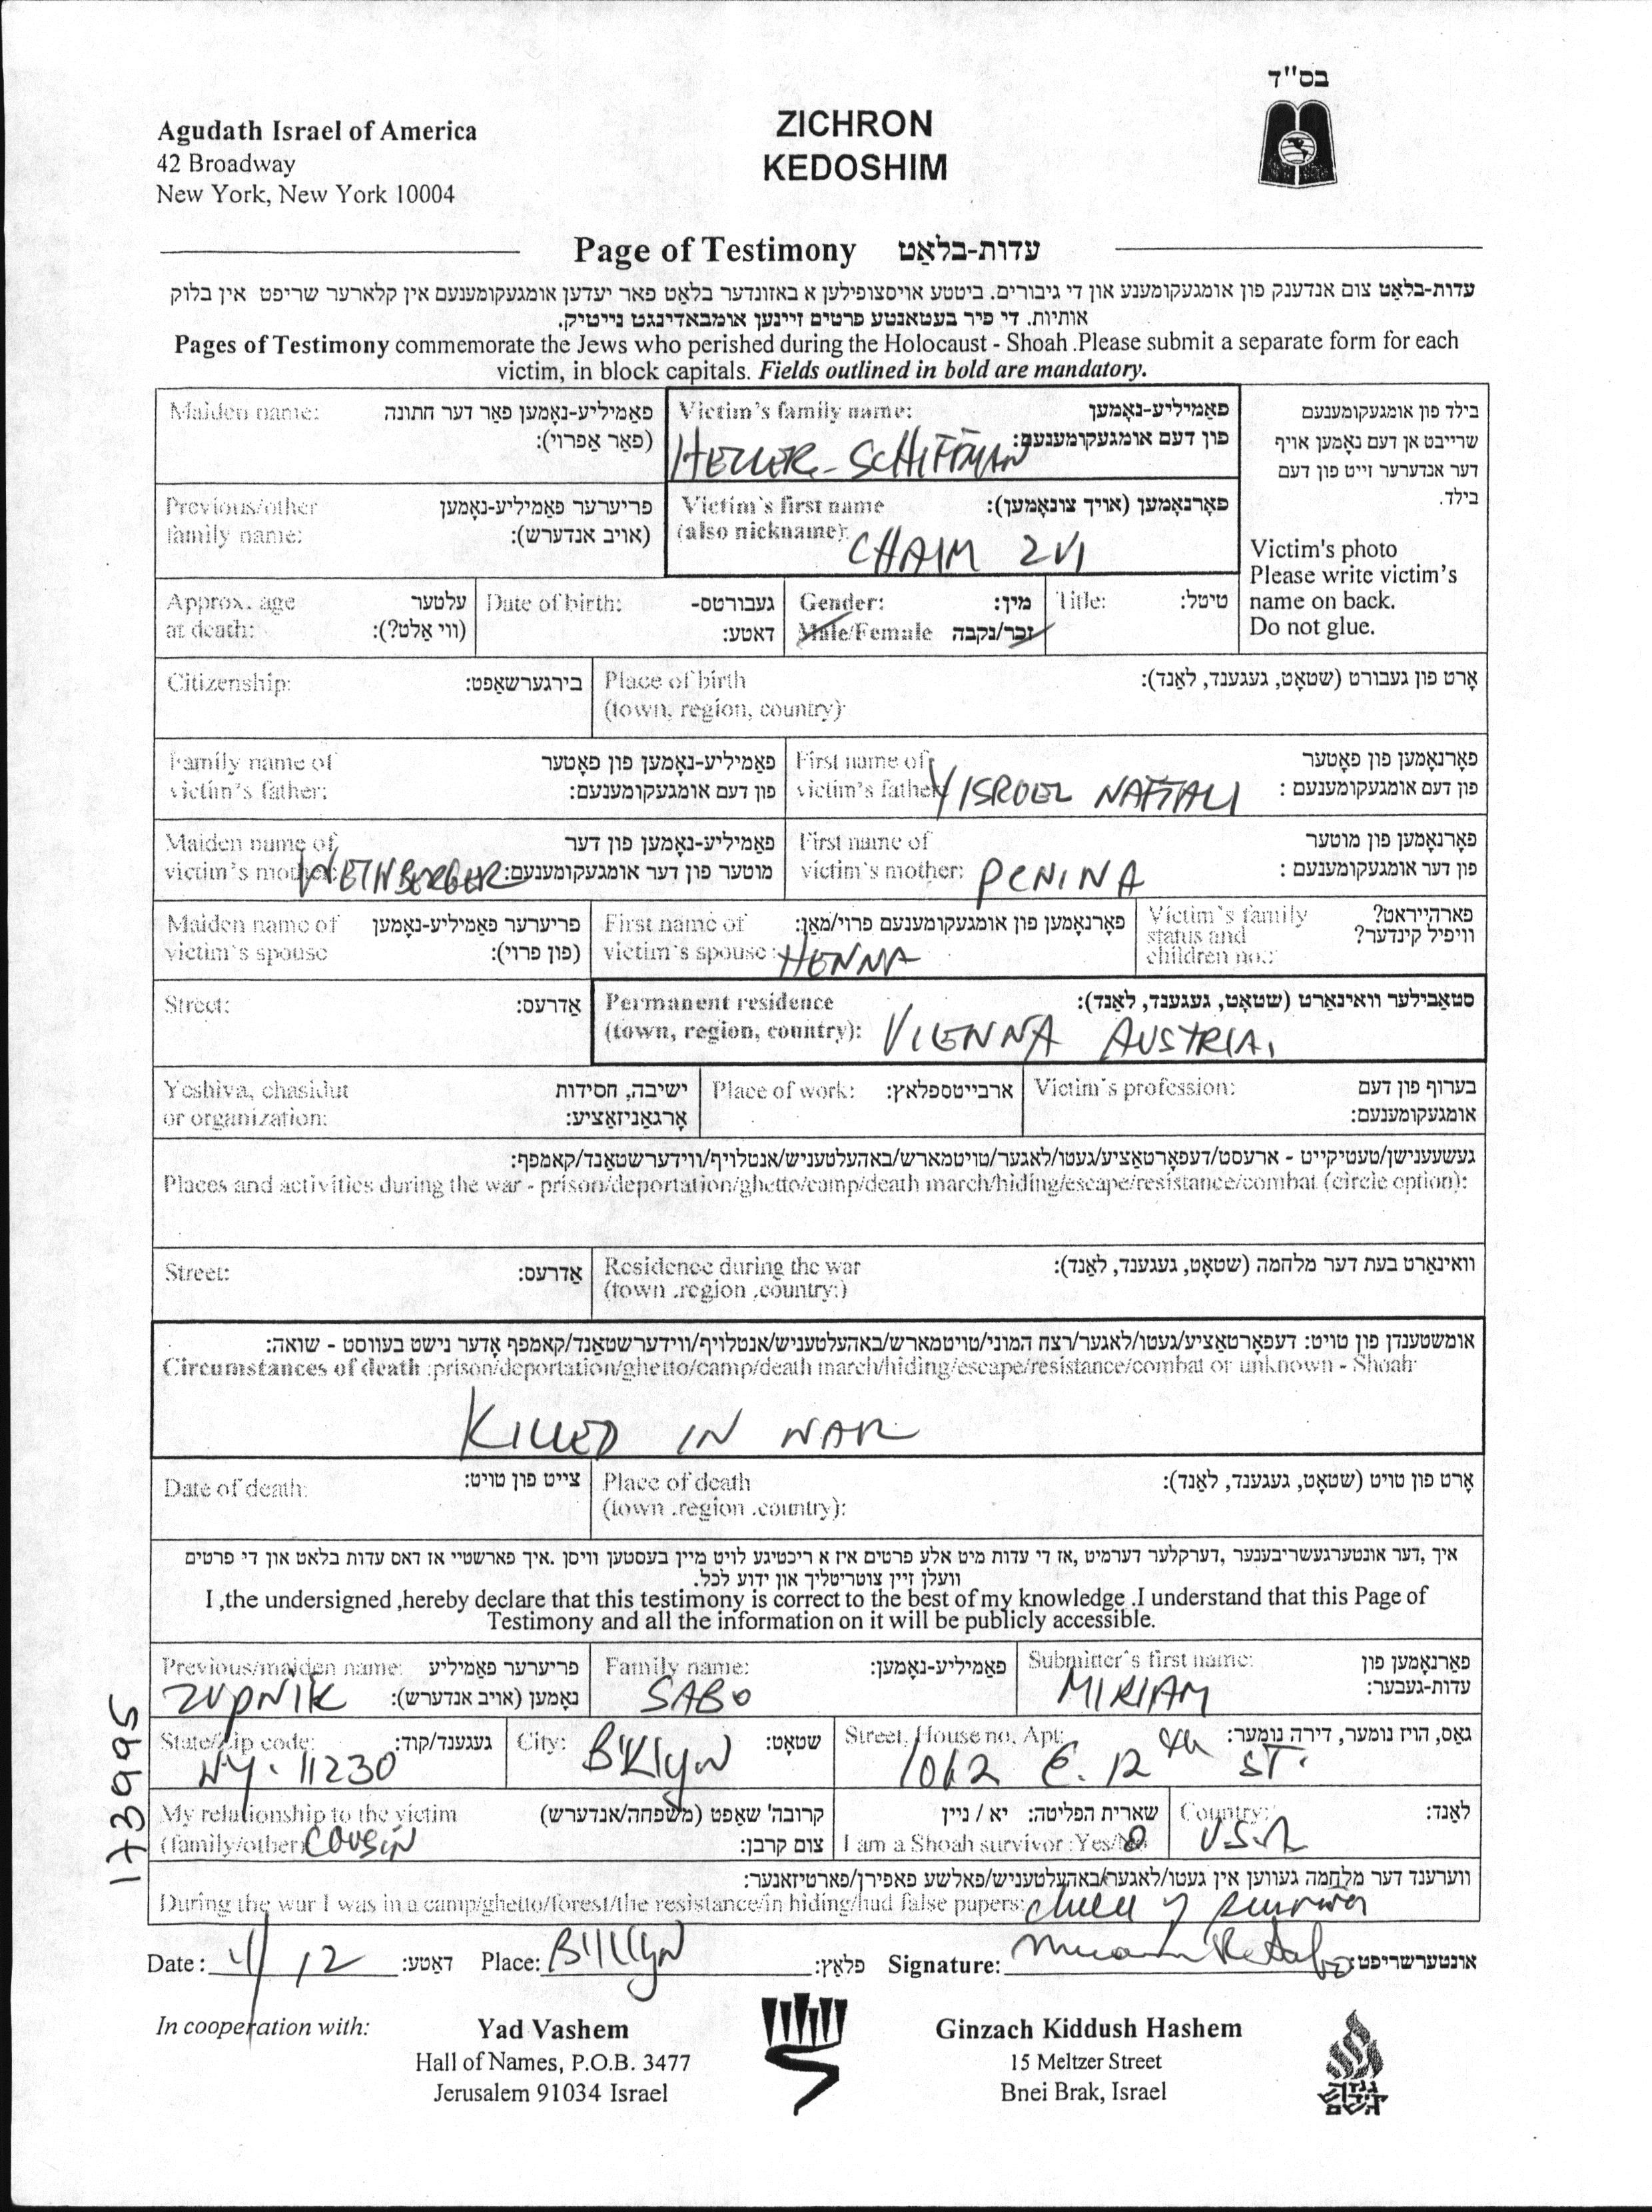 בס"ד
Agudath Israel of America
42 Broadway
New York, New York 10004
ZICHRON
KEDOSHIM
Page of Testimony עדות-בלאַט
עדות-בלאַט צום אנדענק פון אומגעקומענע און די גיבורים. ביטטע אויסצופילען א באזונדער בלאַט פאר יעדען אומגעקומענעם אין קלארער שריפט אין בלוק
אותיות. די פיר בעטאנטע פרטים זיינען אומבאדינגט נייטיק.
Pages of Testimony commemorate the Jews who perished during the Holocaust - Shoah .Please submit a separate form for each
victim, in block capitals. Fields outlined in bold are mandatory.
Maiden name: פאַמיליע-נאָמען פאַר דער חתונה
(פאַר אַפרוי):
Victim's family name: פאַמיליע-נאָמען
פון דעם אומגעקומענעם:
HELLER-SCHIFFMAN
בילד פון אומגעקומענעם
שרייבט אן דעם נאָמען אויף
דער אנדערער זייט פון דעם
בילד.
Victim's photo
Please write victim's
name on back.
Do not glue.
Previous/other פריערער פאַמיליע-נאָמען
family name: (אויב אנדערש):
Victim's first name פאָרנאָמען (אויך צונאָמען):
(also nickname):
CHAIM ZVI
Approx. age עלטער
at death: (ווי אַלט?):
Date of birth: געבורטס-
דאטע:
Gender: מין:
Male/Female זכר/נקבה
Title: טיטל:
Citizenship: בירגערשאַפט:
Place of birth אָרט פון געבורט (שטאָט, געגענד, לאַנד):
(town, region, country):
Family name of פאַמיליע-נאָמען פון פאָטער
victim's father: פון דעם אומגעקומענעם:
First name of פאָרנאָמען פון פאָטער
victim's father: YISROEL NAFTALI פון דעם אומגעקומענעם :
Maiden name of פאַמיליע-נאָמען פון דער
victim's mother: WEINBERGER מוטער פון דער אומגעקומענעם:
First name of פאָרנאָמען פון מוטער
victim's mother: PENINA פון דער אומגעקומענעם :
Maiden name of פריערער פאַמיליע-נאָמען
victim's spouse (פון פרוי):
First name of פאָרנאָמען פון אומגעקומענעם פרוי/מאַן:
victim's spouse: HENNA
Victim's family פארהייראט?
status and וויפיל קינדער?
children no.:
Street: אַדרעס:
Permanent residence סטאַבילער וואינאַרט (שטאָט, געגענד, לאַנד):
(town, region, country): VIENNA AUSTRIA.
Yeshiva, chasidut ישיבה, חסידות
or organization: אָרגאַניזאַציע:
Place of work: ארבייטספלאץ:
Victim's profession: בערוף פון דעם
אומגעקומענעם:
געשעענישן/טעטיקייט - ארעסט/דעפאָרטאַציע/געטו/לאַגער/טויטמארש/באהעלטעניש/אנטלויף/ווידערשטאַנד/קאמפף:
Places and activities during the war - prison/deportation/ghetto/camp/death march/hiding/escape/resistance/combat (circle option):
Street: אַדרעס:
Residence during the war וואינאַרט בעת דער מלחמה (שטאָט, געגענד, לאַנד):
(town .region ,country:)
אומשטענדן פון טויט: דעפאָרטאַציע/געטו/לאַגער/רצח המוני/טויטמארש/באהעלטעניש/אנטלויף/ווידערשטאַנד/קאמפף אָדער נישט בעוווסט - שואה:
Circumstances of death :prison/deportation/ghetto/camp/death march/hiding/escape/resistance/combat or unknown - Shoah:
KILLED IN WAR
Date of death: צייט פון טויט:
Place of death אָרט פון טויט (שטאָט, געגענד, לאַנד):
(town .region .country):
איך ,דער אונטערגעשריבענער ,דערקלער דערמיט ,אז די עדות מיט אלע פרטים איז א ריכטיגע לויט מיין בעסטען וויסן .איך פארשטיי אז דאס עדות בלאט און די פרטים
וועלן זיין צוטריטליך און ידוע לכל.
I ,the undersigned ,hereby declare that this testimony is correct to the best of my knowledge .I understand that this Page of
Testimony and all the information on it will be publicly accessible.
Previous/maiden name: פריערער פאַמיליע
ZUPNIK נאָמען (אויב אנדערש):
Family name: פאַמיליע-נאָמען:
SABO
Submitter's first name: פאַרנאָמען פון
MIRIAM עדות-געבער:
State/Zip code: געגענד/קוד:
N.Y. 11230
City: BKlyN שטאָט:
Street, House no, Apt: גאַס, הויז נומער, דירה נומער:
1062 E. 12th ST.
My relationship to the victim קרובה' שאַפט (משפחה/אנדערש)
(family/other) COUSIN צום קרבן:
שארית הפליטה: יא / ניין
I am a Shoah survivor :Yes/No
Country: לאַנד:
U.S.A
ווערענד דער מלחמה געווען אין געטו/לאגער/באהעלטעניש/פאלשע פאפירן/פארטיזאנער:
During the war I was in a camp/ghetto/forest/the resistance/in hiding/had false papers: child of survivor
Date : 4/12 דאטע: Place: BKlyN פלאַץ: Signature: אונטערשריפט:
173995
In cooperation with:
Yad Vashem
Hall of Names, P.O.B. 3477
Jerusalem 91034 Israel
Ginzach Kiddush Hashem
15 Meltzer Street
Bnei Brak, Israel
גנזך
קידוש
השם